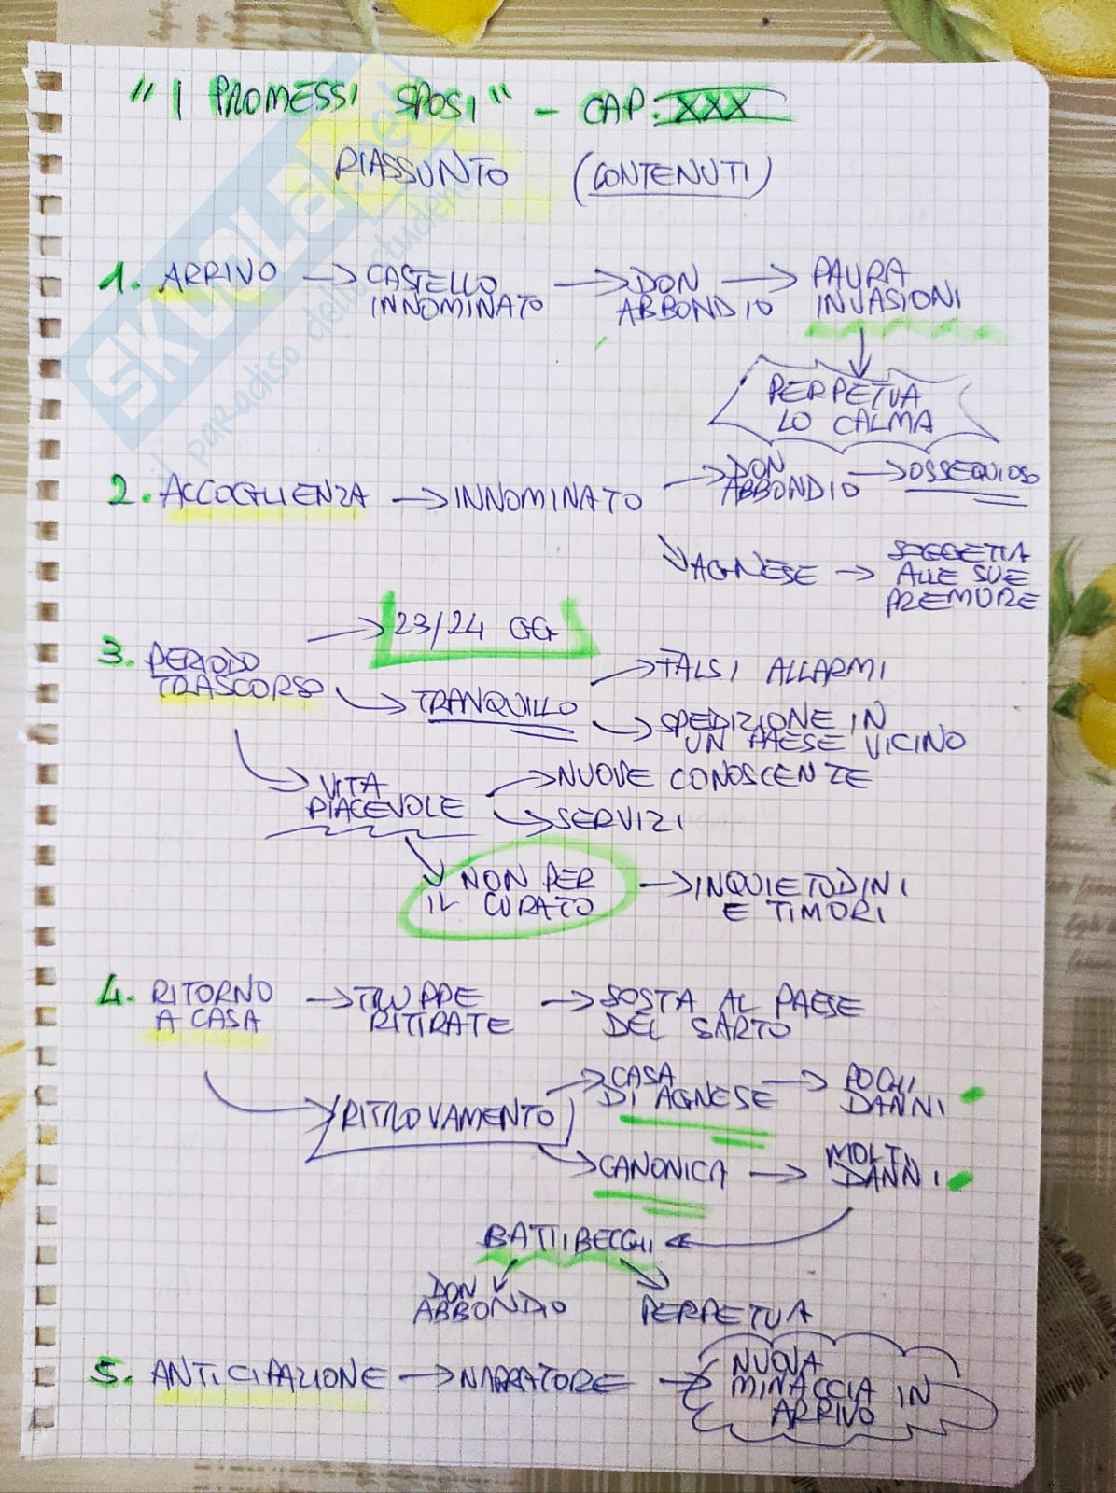 "I PROMESSI SPOSI" - CAP. XXX
RIASSUNTO (CONTENUTI)
SKUOLA.net
il paradiso dello studente
1. ARRIVO → CASTELLO INNOMINATO → DON ABBONDIO → PAURA INVASIONI
PERPETUA
LO CALMA
2. ACCOGLIENZA → INNOMINATO → DON ABBONDIO → OSSEQUIOSO
AGNESE → SOGGETTA
ALLE SUE
PREMURE
23/24 GG
3. PERIODO
TRASCORSO
TRANQUILLO
FALSI ALLARMI
SPEDIZIONE IN
UN PAESE VICINO
VITA
PIACEVOLE
NUOVE CONOSCENZE
SERVIZI
NON PER
IL CURATO
→ INQUIETUDINI
E TIMORI
4. RITORNO
A CASA
→ TRUPPE
RITIRATE
→ SOSTA AL PAESE
DEL SARTO
RITROVAMENTO
CASA
DI AGNESE
→ POCHI
DANNI
CANONICA → MOLTI
DANNI
BATTIBECCHI
DON
ABBONDIO
PERPETUA
5. ANTICIPAZIONE → NARRATORE → NUOVA
MINACCIA IN
ARRIVO